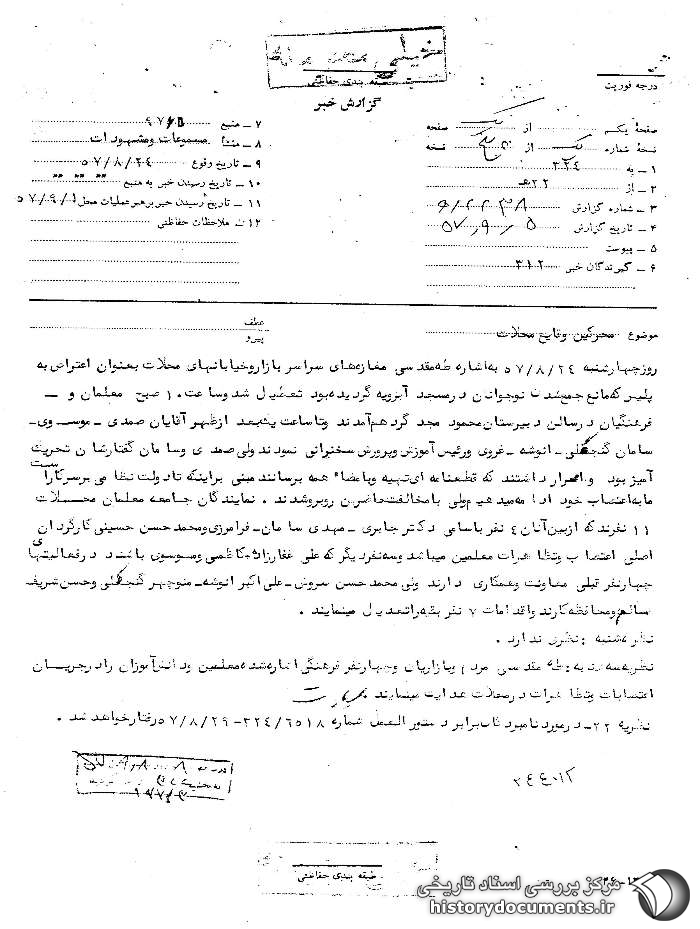 خیلی محرمانه
طبقه بندی حفاظتی
گزارش خبر
درجه فوریت
صفحهٔ یکم از یک صفحه
نسخهٔ شماره یک از نسخه
۱ – به ۳۲۴
۲ – از ۲۲ه‍
۳ – شماره گزارش
۴ – تاریخ گزارش ۵ ر ۹ ر ۵۷
۵ – پیوست
۶ – گیرندگان خبر ۳۱۲
۷ – منبع
۸ – منشأ مسموعات ومشهودات
۹ – تاریخ وقوع ۵۷/۸/۲۴
۱۰ – تاریخ رسیدن خبر به منبع
۱۱ – تاریخ رسیدن خبر برهبر عملیات محل ۵۷/۹/۱
۱۲ – ملاحظات حفاظتی
موضوع محرکین وقایع محلات
عطف
پیرو
روزچهارشنبه ۵۷/۸/۲۴ به اشاره طه مقدسی مغازه‌های سراسر بازاروخیابانهای محلات بعنوان اعتراض به
پلیس که مانع جمع شدن نوجوانان در مسجد گردیده بود تعطیل شد وساعت ۱۰ صبح معلمان و
فرهنگیان درسالن دبیرستان محمود مجد گردهم آمدند وتاساعت یک بعد ازظهر آقایان صمدی – موسوی –
سامان – انوشه – غروی ورئیس آموزش وپرورش سخنرانی نمودند ولی صمدی وسامان گفتارشان تحریک
آمیز بود و اصرار داشتند که قطعنامه ای تهیه وبامضاء همه برسانند مبنی براینکه تادولت نظامی برسرکار است
مابه اعتصاب خود ادامه میدهیم ولی بامخالفت حاضرین روبروشدند . نمایندگان جامعه معلمان محلات
۱۱ نفرند که ازبین آنان ۴ نفر باسامی دکتر جابری – مهدی سامان – فرامرزی ومحمد حسن حسینی کارگردان
اصلی اعتصاب وتظاهرات معلمین میباشد وسه نفر دیگر که علی غفارزاده – کاظمی وموسوی باشند در فعالیتهای
چهارنفر قبلی معاونت وهمکاری دارند ولی محمد حسن سروش – علی اکبر انوشه – منوچهر وحسن شریف
سالم ومحافظه کارند واقدامات ۷ نفر بقیه راتعدیل مینمایند .
نظریه شنبه : نظری ندارد .
نظریه سه شنبه : طه مقدسی مردم وبازاریان وچهارنفر فرهنگی اشاره شده معلمین ودانش آموزان رادرجریان
اعتصابات وتظاهرات درمحلات هدایت مینمایند
نظریه ۲۲ – درمورد نامبردگان برابر دستور العمل شماره ۳۲۴/۶۵۱۸ – ۵۷/۸/۲۹ رفتارخواهد شد .
طبقه بندی حفاظتی
مرکز بررسی اسناد تاریخی
historydocuments.ir